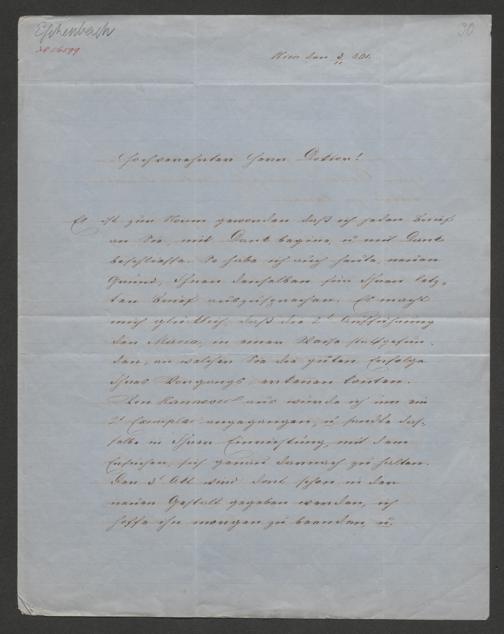 Eschenbach
30
Wien den
Hochverehrter Herr Doktor!
Es ist zur Norm geworden daß ich jeden Brief
an Sie, mit Dank beginne, u mit Dank
beschließe. So habe ich auch heute, neuen
Grund, Ihnen denselben für Ihren letz-
ten Brief auszusprechen. Es macht
mich glücklich, daß die 2te Aufführung
der Maria, in einer Weise stattgefun-
den, an welcher Sie die guten Erfolge
Ihres Vorgangs, erkennen konnten.
Von Hannover aus wurde ich um ein
2tes Exemplar angegangen, u sandte das-
selbe in Ihrer Einrichtung, mit dem
Ersuchen, sich genau darnach zu halten.
Der Akt wird dort schon in der
neuen Gestalt gegeben werden, ich
hoffe ihn morgen zu beenden, u